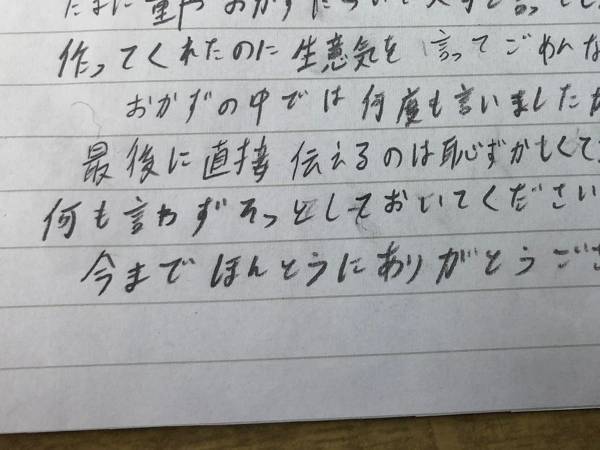 たまに
作ってくれたのに生意気を言ってごめんな
おかずの中では何度も言いました
最後に直接伝えるのは恥ずかしくて
何も言わずそっとしておいてください
今までほんとうにありがとうござ